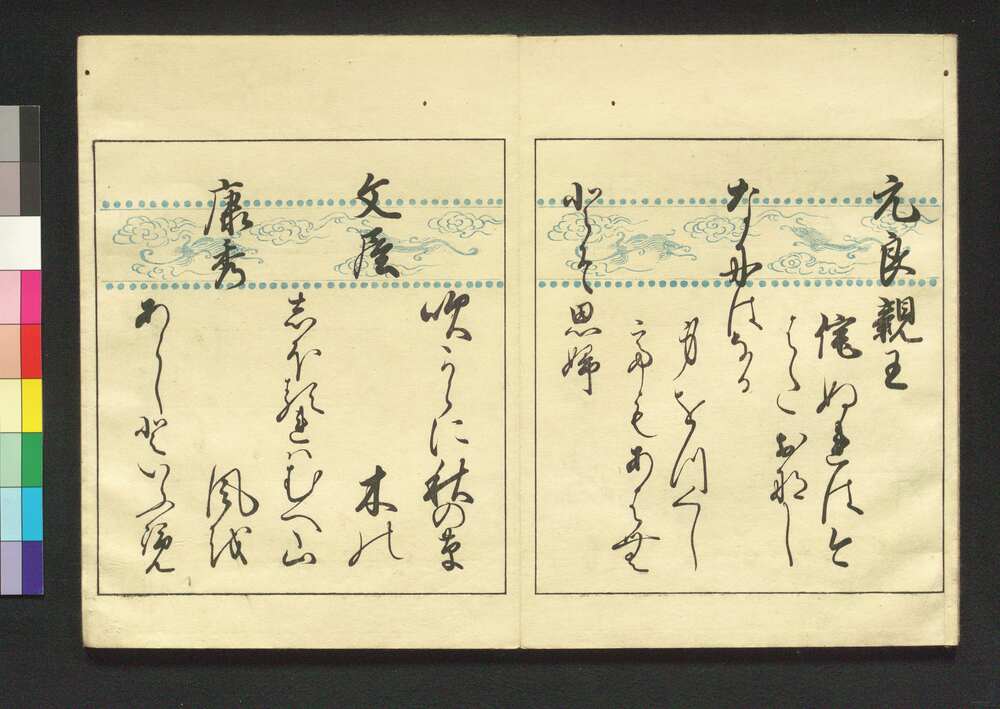 元良親王
侘ぬれは今
はたおなし
なにはなる
身をつくし
てもあはむ
とそ思婦
文屋
康秀
吹からに秋の草
木の
しほるれはむへ山
風を
あらしといふ覧